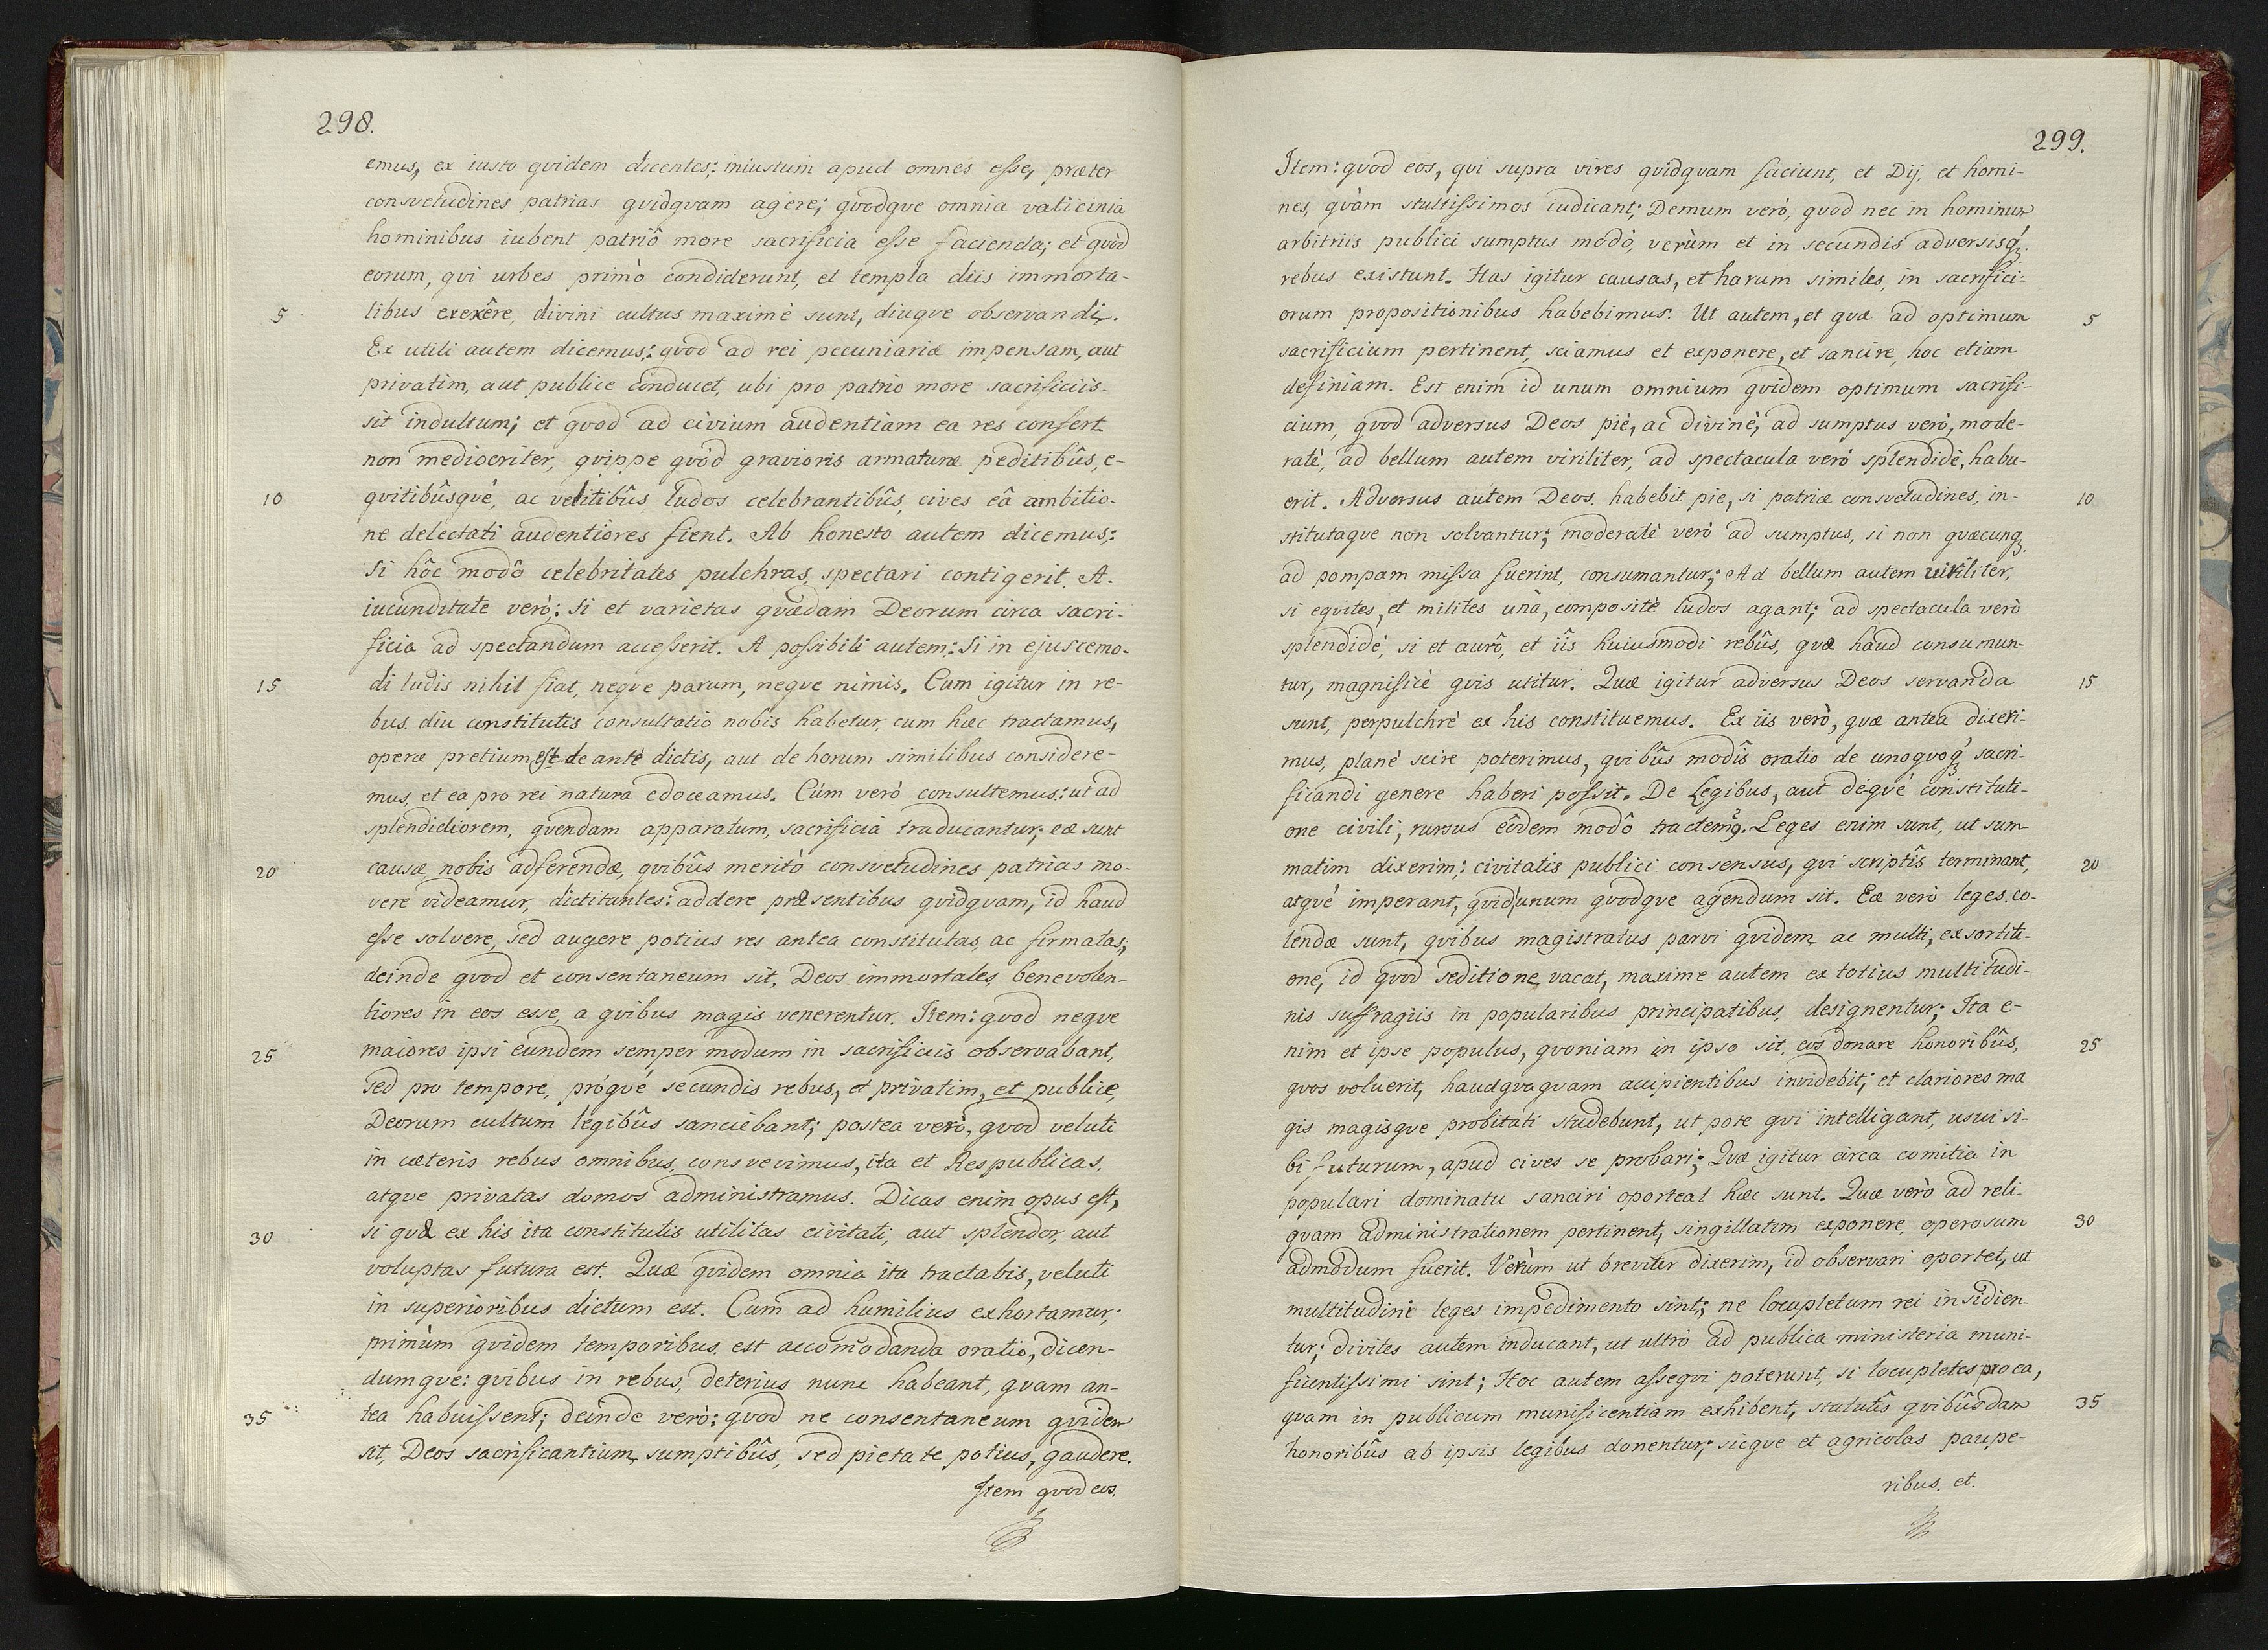 298.
emus, ex iusto qvidem dicentes: iniustum apud omnes esse, præter
consvetudines patrias qvidqvam agere; qvodqve omnia vaticinia
hominibus iubent patriô more sacrificia esse facienda; et qvòd
eorum, qvi urbes primò condiderunt, et templa diis immorta-
5 libus erexêre, divini cultus maximè sunt, diuqve observandi.
Ex utili autem dicemus: qvod ad rei pecuniariæ impensam, aut
privatim, aut publice conducet, ubi pro patrio more sacrificiis
sit indultum; et qvod ad civium audentiam ea res confert
non mediocriter, qvippe qvòd gravioris armaturæ peditibûs, e-
10 qvitibûsqvè, ac velitibûs ludos celebrantibûs, cives eâ ambitio-
ne delectati audentiores fient. Ab honesto autem dicemus:
Si hôc modô celebritates pulchras spectari contigerit. A.
iucunditate verò: Si et varietas qvædam Deorum circa sacri-
ficia ad spectandum accesserit. A possibili autem: Si in ejuscemo-
15 di ludis nihil fiat, neqve parum, neqve nimis. Cum igitur in re-
bus diu constitutis consultatio nobis habetur, cum hæc tractamus,
operæ pretium est de antè dictis, aut de horum similibus considere-
mus, et ea pro rei naturâ edoceamus. Cùm verò consultemus: ut ad
splendidiorem, qvendam apparatum, sacrificia traducantur; eæ sunt
20 causæ nobis adferendæ, qvibûs meritò consvetudines patrias mo-
vere videamur, dictitantes: addere præsentibus qvidqvam, id haud
esse solvere, sed augere potius res antea constitutas, ac firmatas;
deinde qvod et consentaneum sit, Deos immortales benevolen-
tiores in eos esse, a qvibus magis venerentur. Item: qvod neqve
25 maiores ipsi eundem semper modum in sacrificiis observabant,
sed pro tempore, próqvé secundis rebus, et privatim, et publice,
Deorum cultum legibûs sanciebant; postea verò, qvod veluti
in cæteris rebus omnibus consvevimus, ita et Respublicas,
atqve privatas domos administramus. Dicas enim opus est,
30 si qvæ ex his ita constitutis utilitas civitati, aut splendor, aut
voluptas futura est. Quæ qvidem omnia ita tractabis, veluti
in superioribus dictum est. Cum ad humilius exhortamur;
primùm qvidem temporibus est accom̃odanda oratio, dicen-
dumqve: qvibus in rebus, deterius nunc habeant, qvam an-
35 tea habuissent; deinde verò: qvod ne consentaneum qvidem
sit, Deos sacrificantium sumptibûs, sed pietate potius, gaudere.
Item qvod eos.
299.
Item: qvod eos, qvi supra vires qvidqvam faciunt, et Dij, et homi-
nes, qvàm stultissimos iudicant; Demum verò, qvod nec in hominum
arbitriis publici sumptus modò, verùm et in secundis adversisq́ꝫ
rebus existunt. Has igitur causas, et harum similes, in sacrifici-
orum propositionibus habebimus. Ut autem, et qvæ ad optimum 5
sacrificium pertinent, sciamus et exponere, et sancire, hoc etiam
definiam. Est enim id unum omnium qvidem optimum sacrifi-
cium, qvod adversus Deos piè, ac divinè, ad sumptus verò, mode-
ratè, ad bellum autem viriliter, ad spectacula verò splendidè, habu-
erit. Adversus autem Deos habebit pie, si patriæ consvetudines, in- 10
stitutaqve non solvantur; moderatè verò ad sumptus, si non qvæcunqꝫ
ad pompam missa fuerint, consumantur; Ad bellum autem viriliter,
si eqvites, et milites unà, compositè ludos agant; ad spectacula verò
splendidè, si et aurô, et iîs huiusmodi rebûs, qvæ haud consumun-
tur, magnificè qvis utitur. Quæ igitur adversus Deos servanda 15
sunt, perpulchrè ex his constituemus. Ex iis verò, qvæ antea dixeri-
mus, planè scire poterimus, qvibûs modîs oratio de unoqvoq́ꝫ sacri-
ficandi genere haberi possit. De Legibus, aut deqvè constituti-
one civili, rursus eôdem modô tractemꝰ. Leges enim sunt, ut sum-
matim dixerim: civitatis publici consensus, qvi scriptîs terminant, 20
atqvè imperant, qvid unum qvodqve agendum sit. Eæ verò leges co-
lendæ sunt, qvibus magistratus parvi qvidem ac multi, ex sortiti-
one, id qvod seditione vacat, maxime autem ex totius multitudi-
nis suffragiis in popularibus principatibus designentur; Ita e-
nim et ipse populus, qvoniam in ipso sit, eos donare honoribûs, 25
qvos voluerit, haudqvaqvam accipientibus invidebit; et clariores ma
gis magisqve probitati studebunt, ut pote qvi intelligant, usui si-
bi futurum, apud cives se probari; Qvæ igitur circa comitia in
populari dominatu sanciri oporteat hæc sunt. Quæ verò ad reli-
qvam administrationem pertinent, singillatim exponere, operosum 30
admodum fuerit. Verùm ut breviter dixerim, id observari oportet, ut
multitudini leges impedimento sint; ne locupletum rei insidien-
tur; divites autem inducant, ut ultrò ad publica ministeria muni-
ficentissimi sint; Hoc autem asseqvi poterunt, si locupletes pro ea,
qvam in publicum munificentiam exhibent, statutîs qvibûsdam 35
honoribûs ab ipsis legibus donentur; sicqve et agricolas paupe-
ribus et.